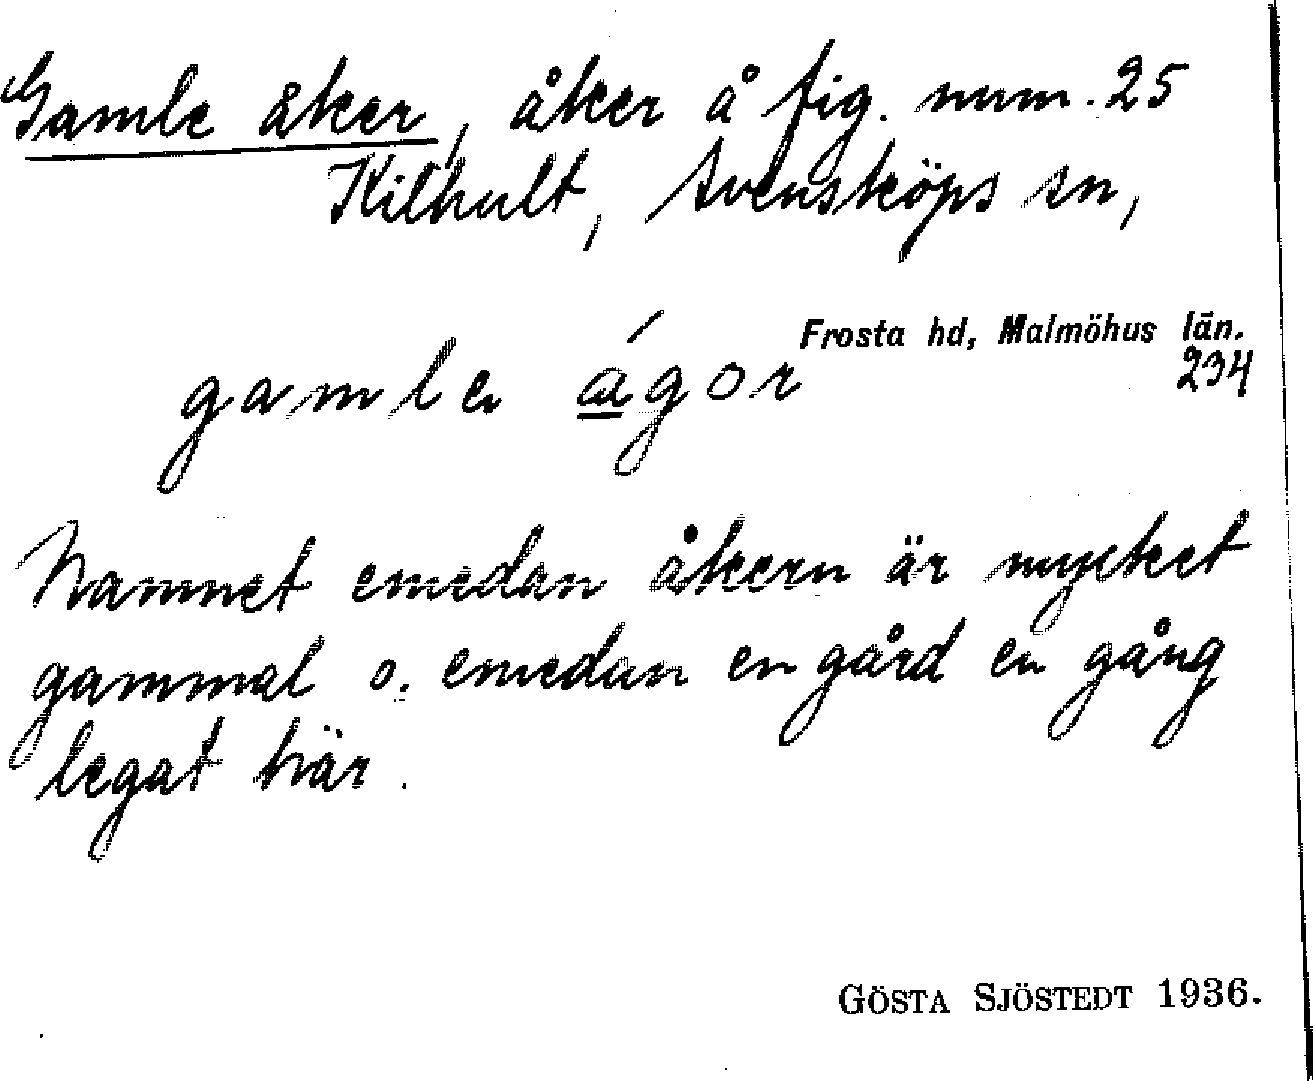 Gamle åker, åker å fig. num. 25
Kilhult, Svensköps sn,
Frosta hd, Malmöhus län.
234
gamle ágor
Namnet emedan åkern är mycket
gammal o. emedan en gård en gång
legat här.
GÖSTA SJÖSTEDT 1936.